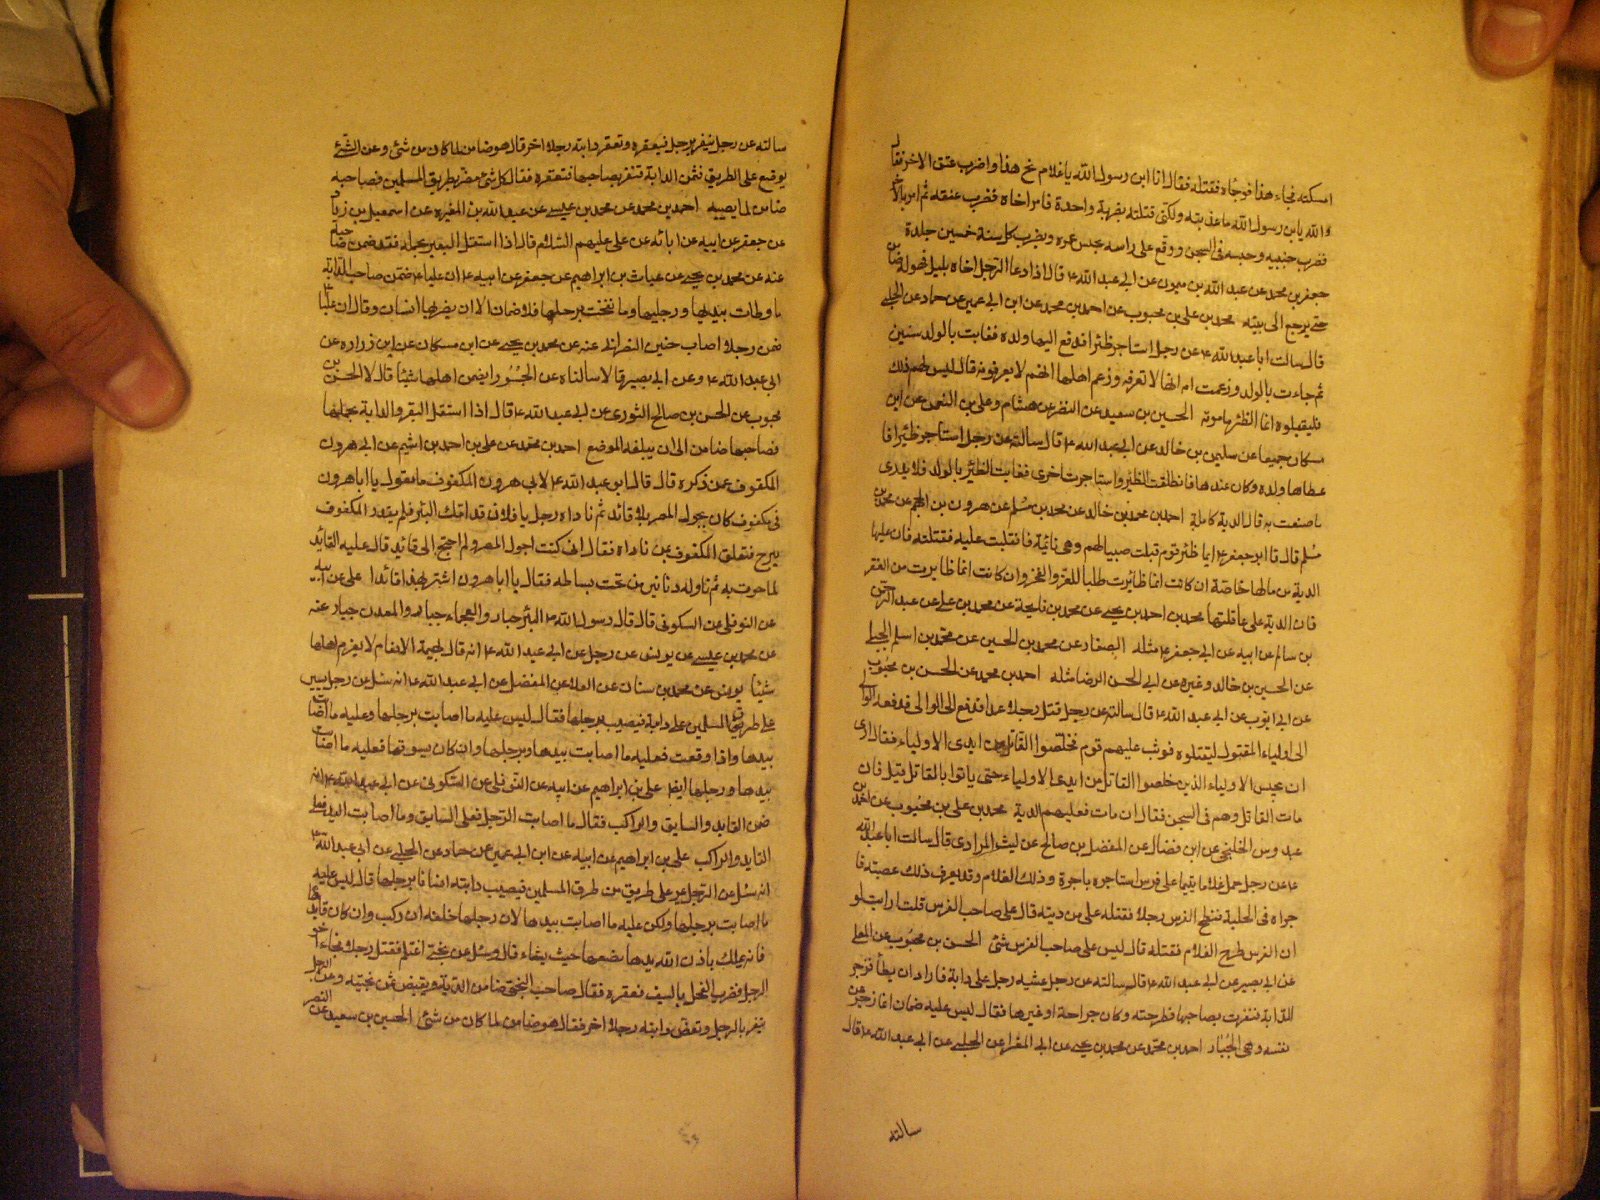 امسكته فجاء هذا فوجاه فقتله فقال انا ابن رسول الله يا غلام نح هذا واضرب عنق الاخر فقال
والله يا بن رسول الله ما عذبته ولكنى قتلته بضربة واحدة فامر اخاه فضرب عنقه ثم امر بالاخر
فضرب جنبيه وحبسه فى السجن ووقع على راسه يحبس عمره ويضرب كل سنة خمسين جلدة
جعفر بن محمد عن عبد الله بن ميمون عن ابى عبد الله ع قال اذا دعا الرجل اخاه بليل فهو له ضامن
حتى يرجع الى بيته محمد بن على بن محبوب عن احمد بن محمد عن ابن ابى عمير عن حماد عن الحلبى
قال سالت ابا عبد الله ع عن رجل استاجر ظئرا فدفع اليها ولده فغابت بالولد سنين
ثم جاءت بالولد وزعمت امه انها لا تعرفه وزعم اهلها انهم لا يعرفونه قال ليس لهم ذلك
فليقبلوه انما الظئر مامونة الحسين بن سعيد عن النضر عن هشام وعلى بن النعمن عن ابن
مسكان جميعا عن سليمن بن خالد عن ابى عبد الله ع قال سالته عن رجل استاجر ظئرا فا
عطاها ولده وكان عندها فانطلقت الظئر واستاجرت اخرى فغابت الظئر بالولد فلا يدرى
ما صنعت به قال الدية كاملة احمد بن محمد بن خالد عن محمد بن مسلم عن هرون بن الجهم عن محمد بن
مسلم قال قا ابو جعفر ع ايما ظئر قوم قبلت صبيا لهم وهى نائمة فانقلبت عليه فقتلته فان عليها
الدية من مالها خاصة ان كانت انما ظائرت طلبا للعز والفخر وان كانت انما ظايرت من الفقر
فان الدية على عاقلتها محمد بن احمد بن يحيى عن محمد بن ناجية عن محمد بن على عن عبد الرحمن
بن سالم عن ابيه عن ابى جعفر ع مثله الصفار عن محمد بن الحسين عن محمد بن اسلم الجبلى
عن الحسين بن خالد وغيره عن ابى الحسن الرضا مثله احمد بن محمد عن الحسن بن محبوب
عن ابى ايوب عن ابى عبد الله ع قال سالته عن رجل قتل رجلا عمدا فدفع الى الوالى فدفعه الوالى
الى اولياء المقتول ليقتلوه فوثب عليهم قوم فخلصوا القاتل من ايدى الاولياء فقال ارى
ان يحبس الاولياء الذين خلصوا القاتل من ايدى الاولياء حتى ياتوا بالقاتل قيل فان
مات القاتل وهم فى السجن فقال ان مات فعليهم الدية محمد بن على بن محبوب عن احمد بن
عبدوس الخلنجى عن ابن فضال عن المفضل بن صالح عن ليث المرادى قال سالت ابا عبد الله
ع عن رجل حمل غلاما يتيما على فرس استاجره باجرة وذلك الغلام وقد يعرف ذلك عصبته فا
جراه فى الحلبة فنطح الفرس رجلا فقتله على من ديته قال على صاحب الفرس قلت ارايت لو
ان الفرس طرح الغلام فقتله قال ليس على صاحب الفرس شئ الحسن بن محبوب عن المعلى
عن ابى بصير عن ابى عبد الله ع قال سالته عن رجل غشيه رجل على دابة فاراد ان يطأ فزجر
الدابة فنفرت بصاحبها فطرحته وكان جراحة او غيرها فقال ليس عليه ضمان انما زجر عن
نفسه وهى الجبار احمد بن محمد عن محمد بن يحيى عن ابى المغرا عن الحلبى عن ابى عبد الله ع قال
سالته
سالته عن رجل ينفر برجل فيعقره وتعقر دابته رجلا اخر قال هو ضامن لما كان من شئ وعن الشئ
يوضع على الطريق فتمر الدابة فتنفر بصاحبها فتعقره فقال كل شئ مضر بطريق المسلمين فصاحبه
ضامن لما يصيبه احمد بن محمد عن محمد بن عيسى عن عبد الله بن المغيرة عن اسمعيل بن زياد
عن جعفر عن ابيه عن ابائه عن على عليهم السلام قال اذا استقل البعير بحمله فقد ضمن صاحبه
عنه عن محمد بن يحيى عن غياث بن ابراهيم عن جعفر عن ابيه ع ان عليا ع ضمن صاحب الدابة
ما وطات بيديها ورجليها وما نفحت برجلها فلا ضمان الا ان يضربها انسان وقال ان عليا ع
ضمن رجلا اصاب خنزير النصرانى عنه عن محمد بن يحيى عن ابن مسكان عن ابن زراره عن
ابى عبد الله ع وعن ابى بصير قالا سالناه عن الجسور ايضمن اهلها شيئا قال لا الحسن بن
محبوب عن الحسن بن صالح الثورى عن ابى عبد الله ع قال اذا استقل البقر والدابة بحملهما
فصاحبهما ضامن الى ان يبلغه الموضع احمد بن محمد عن على بن احمد بن اشيم عن ابى هرون
المكفوف عمن ذكره قال قال ابو عبد الله ع لابى هرون المكفوف ما تقول يا ابا هرون
فى مكفوف كان يجول المصر بلا قائد ثم ناداه رجل يا فلان قدامك البئر فلم يقدر المكفوف
يبرح فتعلق المكفوف بمن ناداه فقال انى كنت اجول المصر ولم احتج الى قائد قال عليه القائد
لما صوت به ثم ناوله دنانير من تحت بساطه فقال يا ابا هرون اشتر بهذا قائدا على عن ابيه
عن النوفلى عن السكونى قال قال رسول الله ص البئر جبار والعجماء جبار والمعدن جبار عنه
عن محمد بن عيسى عن يونس عن رجل عن ابى عبد الله ع انه قال بهيمة الانعام لا يغرم اهلها
شيئا يونس عن محمد بن سنان عن العلا عن المفضل عن ابى عبد الله ع انه سئل عن رجل يسير
على طريق المسلمين على دابة فيصيب برجلها فقال ليس عليه ما اصابت برجلها وعليه ما اصابت
بيدها واذا وقفت فعليه ما اصابت بيدها ورجلها وان كان يسوقها فعليه ما اصابت
بيدها ورجلها ايضا على بن ابراهيم عن ابيه عن النوفلى عن السكونى عن ابى عبد الله ع انه
ضمن القايد والسايق والراكب فقال ما اصابت الرجل فعلى السايق وما اصابت اليد فعلى
القايد والراكب على بن ابراهيم عن ابيه عن ابن ابى عمير عن حماد عن الحلبى عن ابى عبد الله ع
انه سئل عن الرجل يمر على طريق من طرق المسلمين فيصيب دابته انسانا برجلها قال ليس عليه
ما اصابت برجلها ولكن عليه ما اصابت بيدها لان رجلها خلفه ان ركب وان كان قايدها
فانه يملك باذن الله يدها يضعها حيث يشاء قال وسئل عن بختى اغتلم فقتل رجلا فجاء اخو
الرجل فضرب الفحل بالسيف فعقره فقال صاحب البختى ضامن الدية ويقبض ثمن بختيه وعن الرجل
ينفر بالرجل وتعقر دابته رجلا اخر فقال هو ضامن لما كان من شئ الحسين بن سعيد عن النضر